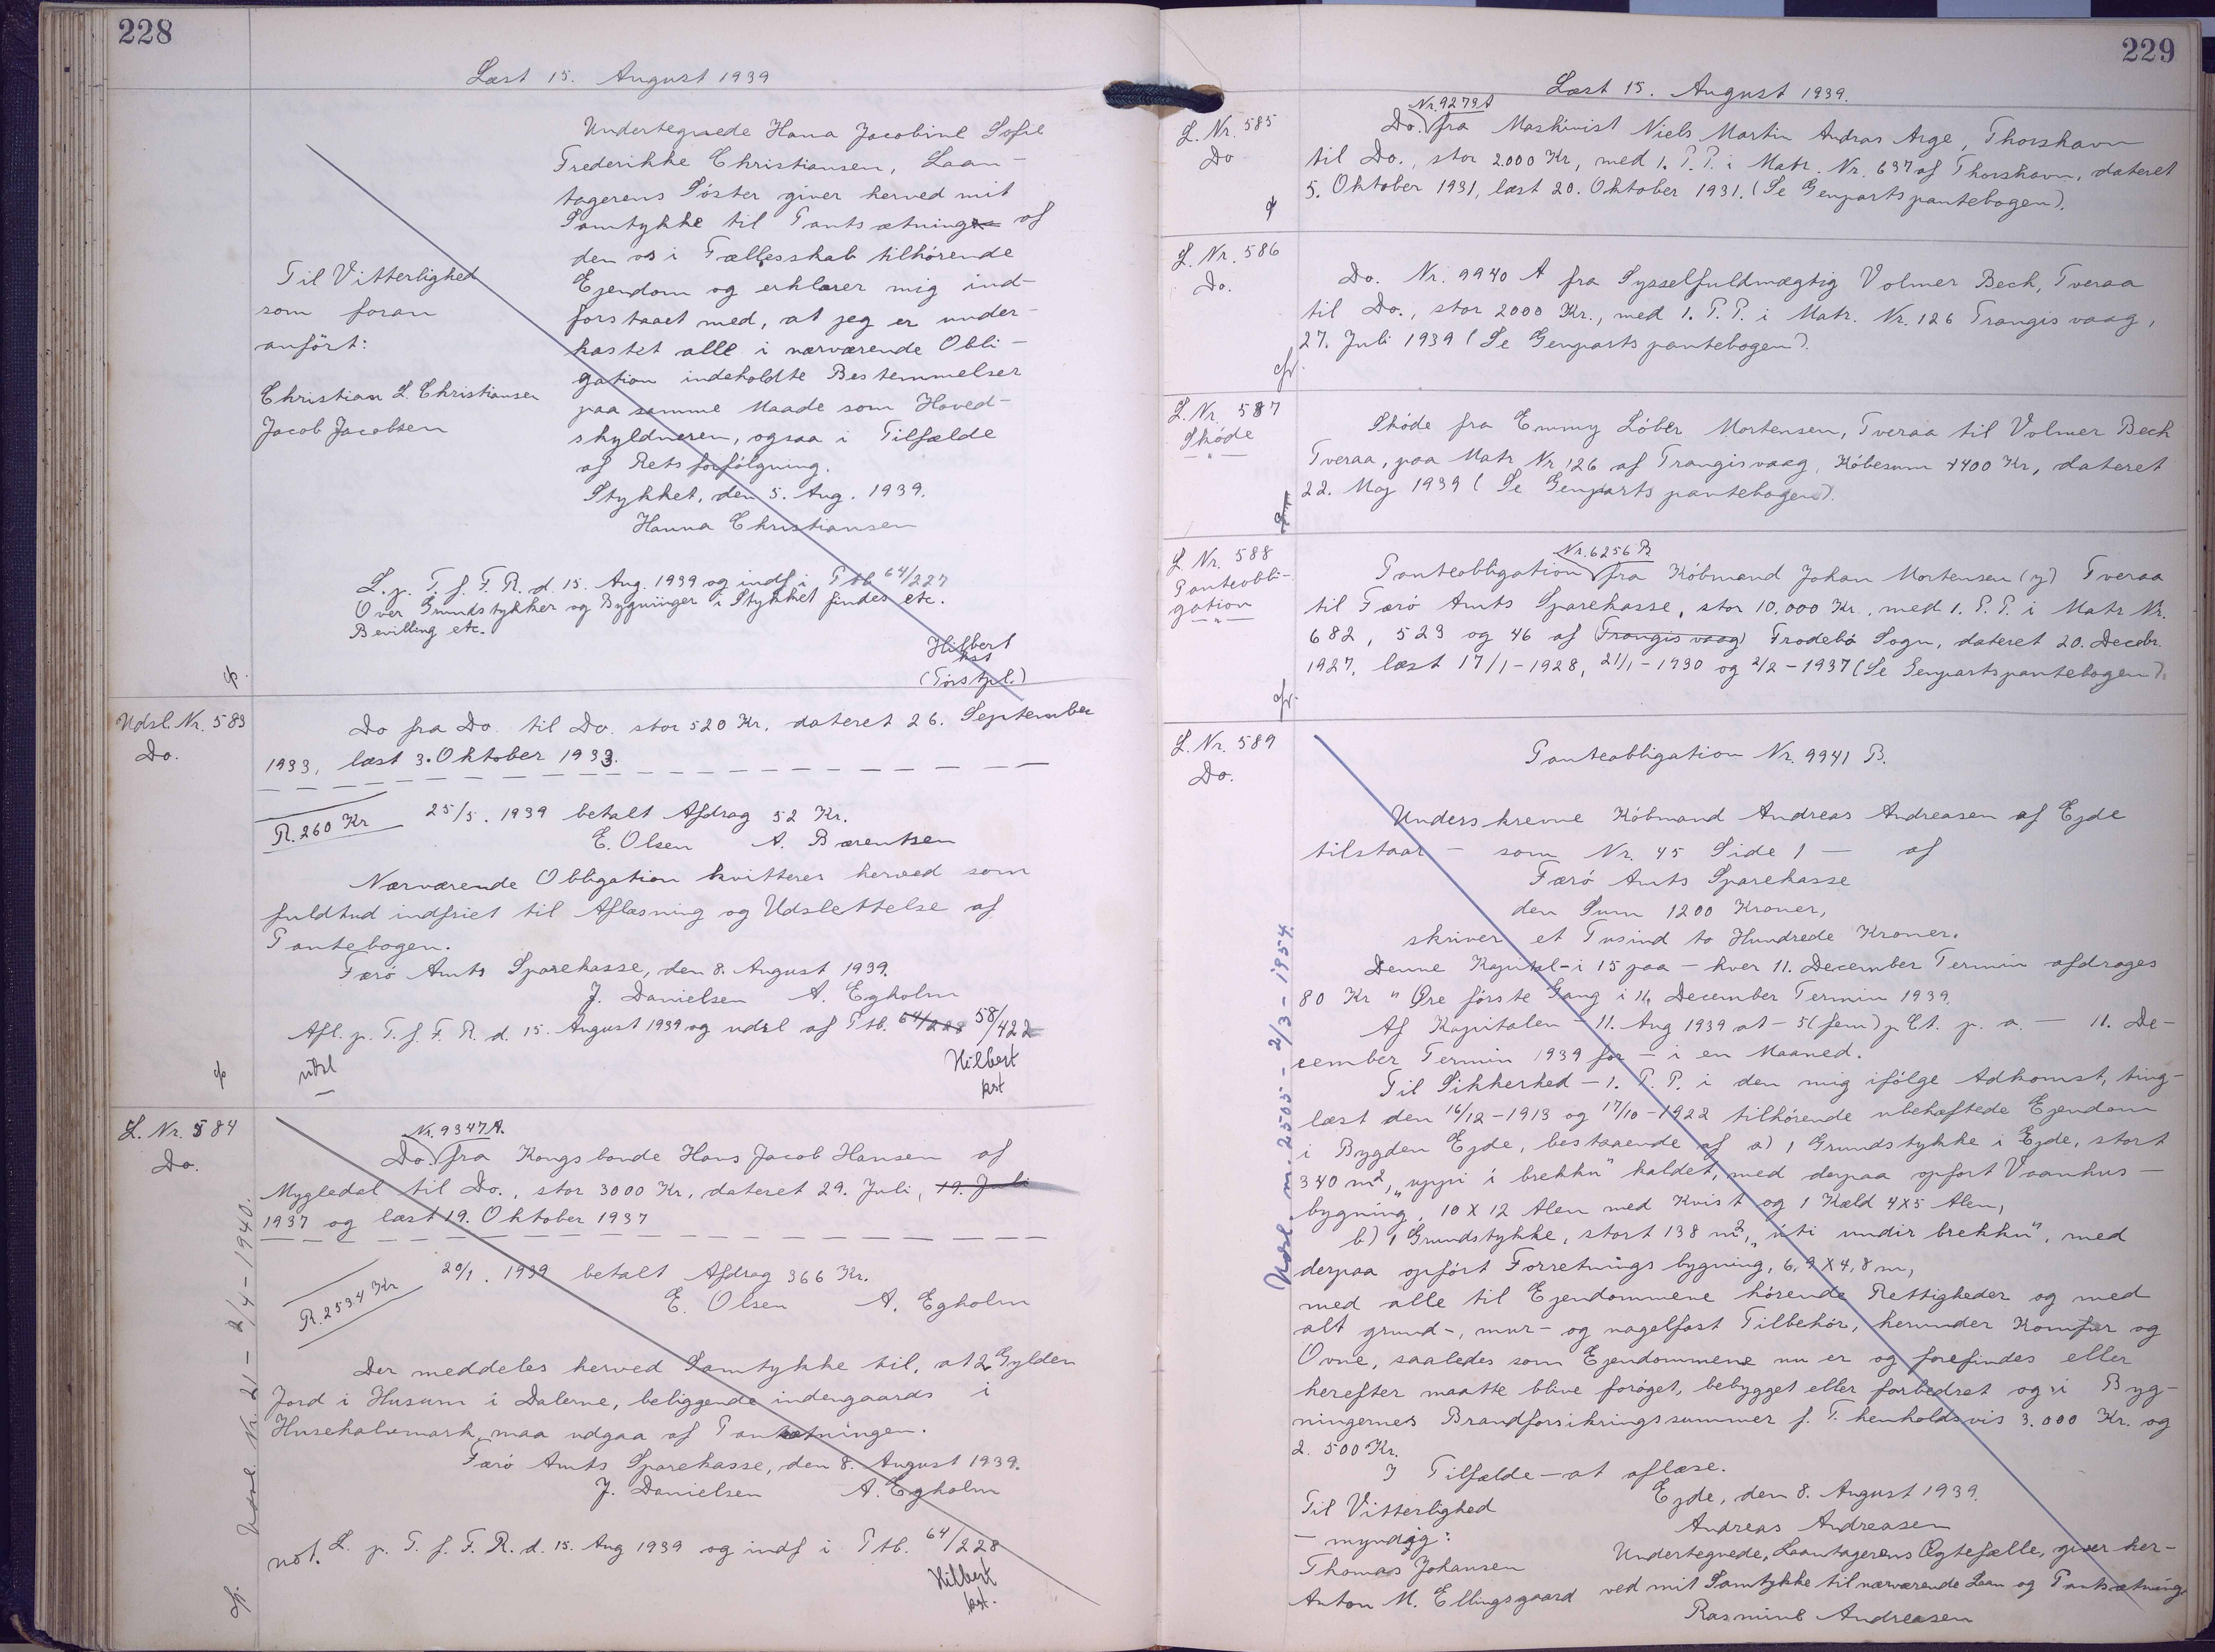 228
Læst 15. August 1939
Undertegnede Hana Jacobine Sofie
Frederikke Christiansen, Laan-
tagerens Söster giver herved mit
Samtykke til Pantsætning af
den os i Fællesskab tilhörende
Ejendom og erklærer mig ind-
forstaaet med, at jeg er under-
kastet alle i nærværende Obli-
gation indeholdte Bestemmelser
paa samme Maade som Hoved-
skyldneren, ogsaa i Tilfælde
af Retsforfölgning.
Stykket, den 5. Aug. 1939.
Hanna Christiansen
Til Vitterlighed
som foran
anfört:
Christian L. Christiansen
Jacob Jacobsen
L. p. T. f. F. R. d. 15. Aug. 1939 og indf i Ptb 64/227
Over Grundstykker og Bygninger i Stykket findes etc.
Bevilling etc.
Hilbert
kst
(Torstpl.)
Udsl. Nr. 583
Do.
Do fra Do. til Do. stor 520 Kr. dateret 26. September
1933, læst 3. Oktober 1933.
R. 260 Kr
25/5. 1939 betalt Afdrag 52 Kr.
E. Olsen A. Bærentsen
Nærværende Obligation kvitteres herved som
fuldtud indfriet til Aflæsning og Udslettelse af
Pantebogen.
Færö Amts Sparekasse, den 8. August 1939.
J. Danielsen A. Egholm
Afl. p. T. f. F. R. d. 15. August 1939 og udsl af Ptb. 64/228 58/422
udsl
Hilbert
kst
L. Nr. 584
Do.
Nr. 9347A.
Do. fra Kongsbonde Hans Jacob Hansen af
Mygledal til Do., stor 3000 Kr, dateret 29. Juli, 19. Juli
1937 og læst 19. Oktober 1937
R. 2534 Kr
20/1. 1939 betalt Afdrag 366 Kr.
E. Olsen A. Egholm
Der meddeles herved Samtykke til, at 2 Gylden
Jord i Husum i Dalerne, beliggende indengaards i
Husehalvemark, maa udgaa af Pantsætningen.
Færö Amts Sparekasse, den 8. August 1939.
J. Danielsen A. Egholm
not. L. p. T. f. F. R. d. 15. Aug 1939 og indf i Ptb. 64/228
Hilbert
kst.
Udsl. Nr. 21 - 2/4 - 1940.
229
Læst 15. August 1939.
L. Nr. 585
Do
Nr. 9279A
Do. fra Maskinist Niels Martin Andras Arge, Thorshavn
til Do., stor 2.000 Kr, med 1. P. P. i Matr. Nr. 637 af Thorshavn, dateret
5. Oktober 1931, læst 20. Oktober 1931. (Se Genpartspantebogen).
L. Nr. 586
Do.
Do. Nr. 9940 A fra Sysselfuldmægtig Volmer Bech, Tveraa
til Do., stor 2000 Kr., med 1. P. P. i Matr. Nr. 126 Trangisvaag,
27. Juli 1939 (Se Genpartspantebogen).
L. Nr. 587
Sköde
Sköde fra Emmy Löbes Mortensen, Tveraa til Volmer Bech
Tveraa, paa Matr Nr 126 af Trangisvaag, Köbesum 4400 Kr, dateret
22. Maj 1939 (Se Genpartspantebogen).
L. Nr. 588
Panteobli-
gation
Nr. 6256 B
Panteobligation fra Köbmand Johan Mortensen (y) Tveraa
til Færö Amts Sparekasse, stor 10.000 Kr., med 1. P. P. i Matr Nr.
682, 523 og 46 af (Trangisvaag) Frodebö Sogn, dateret 20. Decebr.
1927, læst 17/1 - 1928, 21/1 - 1930 og 2/2 - 1937 (Se Genpartspantebogen).
L. Nr. 589
Do.
Panteobligation Nr. 9941 B.
Underskrevne Köbmand Andreas Andreasen af Ejde
tilstaar — som Nr. 45 Side 1 — af
Færö Amts Sparekasse
den Sum 1200 Kroner,
skriver et Tusind to Hundrede Kroner.
Denne Kapital - i 15 paa - hver 11. December Termin afdrages
80 Kr " Øre förste Gang i 11. December Termin 1939.
Af Kapitalen - 11. Aug 1939 at - 5 (fem) p. Ct. p. a. — 11. De-
cember Termin 1939 for - i en Maaned.
Til Sikkerhed - 1. P. P. i den mig ifölge Adkomst, ting-
læst den 16/12 - 1913 og 17/10 - 1922 tilhörende ubehæftede Ejendom
i Bygden Ejde, bestaaende af a) 1 Grundstykke i Ejde, stort
340 m2, "uppi í brekku" kaldet, med derpaa opfört Vaanhus-
bygning, 10 X 12 Alen med Kvist og 1 Kæld 4X5 Alen,
b) 1 Grundstykke, stort 138 m2, "úti undir brekku", med
derpaa opfört Forretnings bygning, 6,9 X 4,8 m,
med alle til Ejendommene hörende Rettigheder og med
alt grund-, mur- og nagelfast Tilbehör, herunder Komfur og
Ovne, saaledes som Ejendommene nu er og forefindes eller
herefter maatte blive foröget, bebygget eller forbedret og i Byg-
ningernes Brandforsikringssummer f. T. henholdsvis 3.000 Kr. og
2. 500 Kr.
I Tilfælde - at aflæse.
Ejde, den 8. August 1939.
Andreas Andreasen
Til Vitterlighed
- myndig:
Thomas Johansen
Anton M. Ellingsgaard
Undertegnede, Laantagerens Ægtefælle, giver her-
ved mit Samtykke til nærværende Laan og Pantsætning
Rasmine Andreasen
Udsl. m. 2505 - 2/3 - 1954.